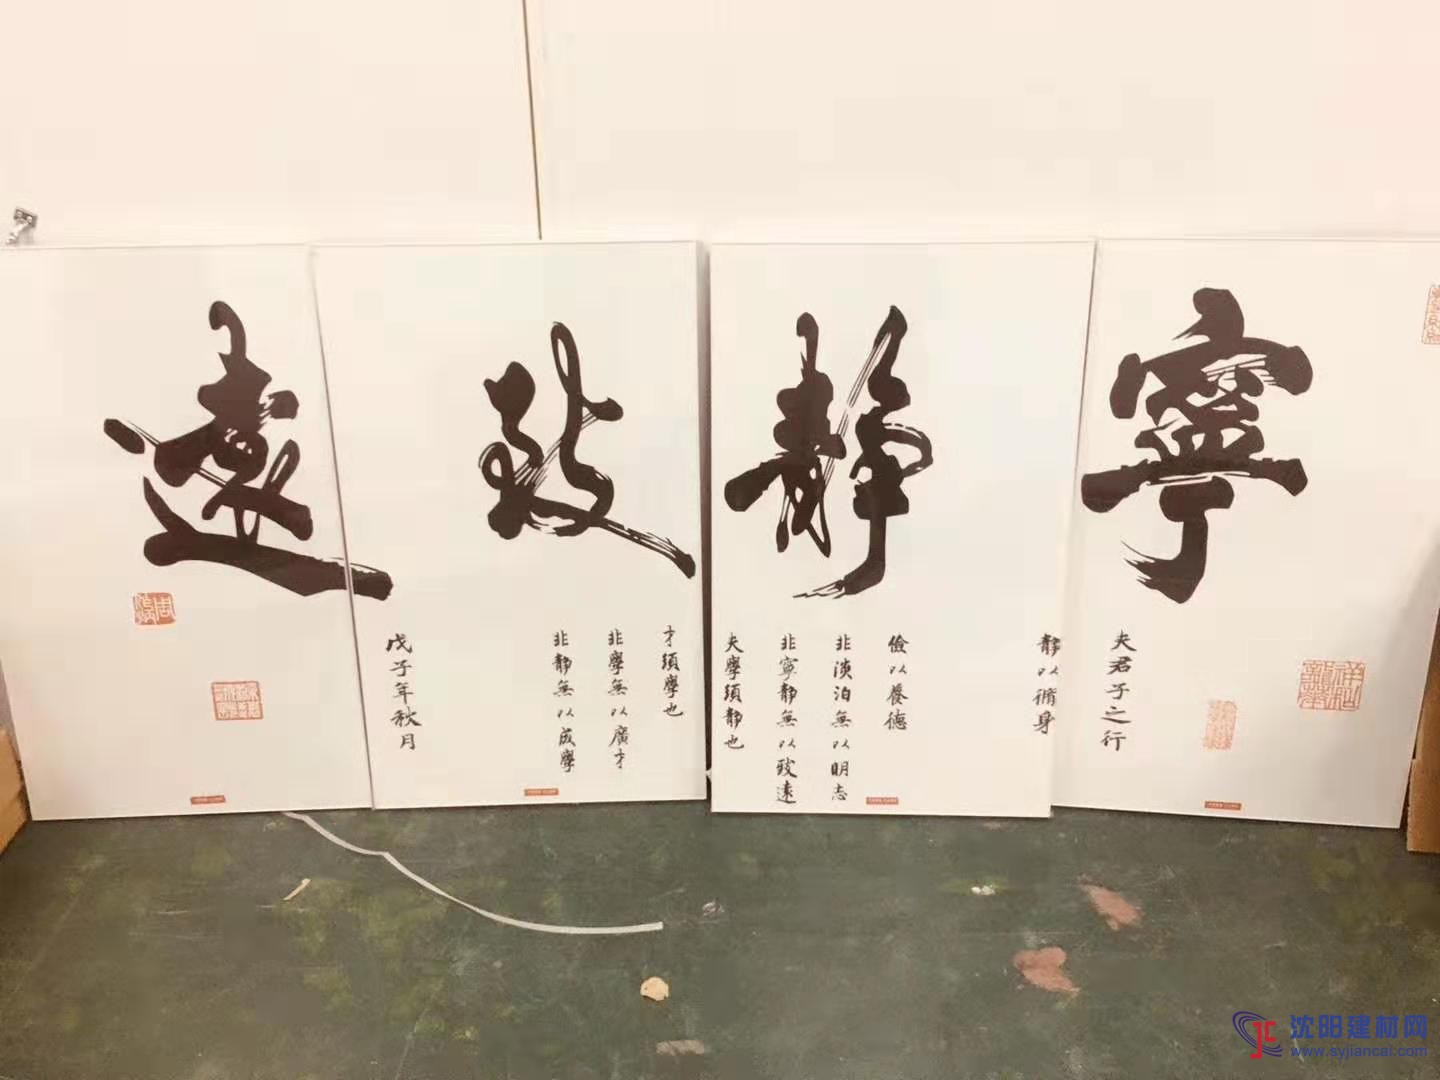 寧
静
致
遠
夫君子之行
静以循身
儉以養德
非淡泊無以明志
非寧静無以致遠
夫學須静也
才須學也
非學無以廣才
非静無以成學
戊子年秋月
沈阳建材网
www.syjiancai.com